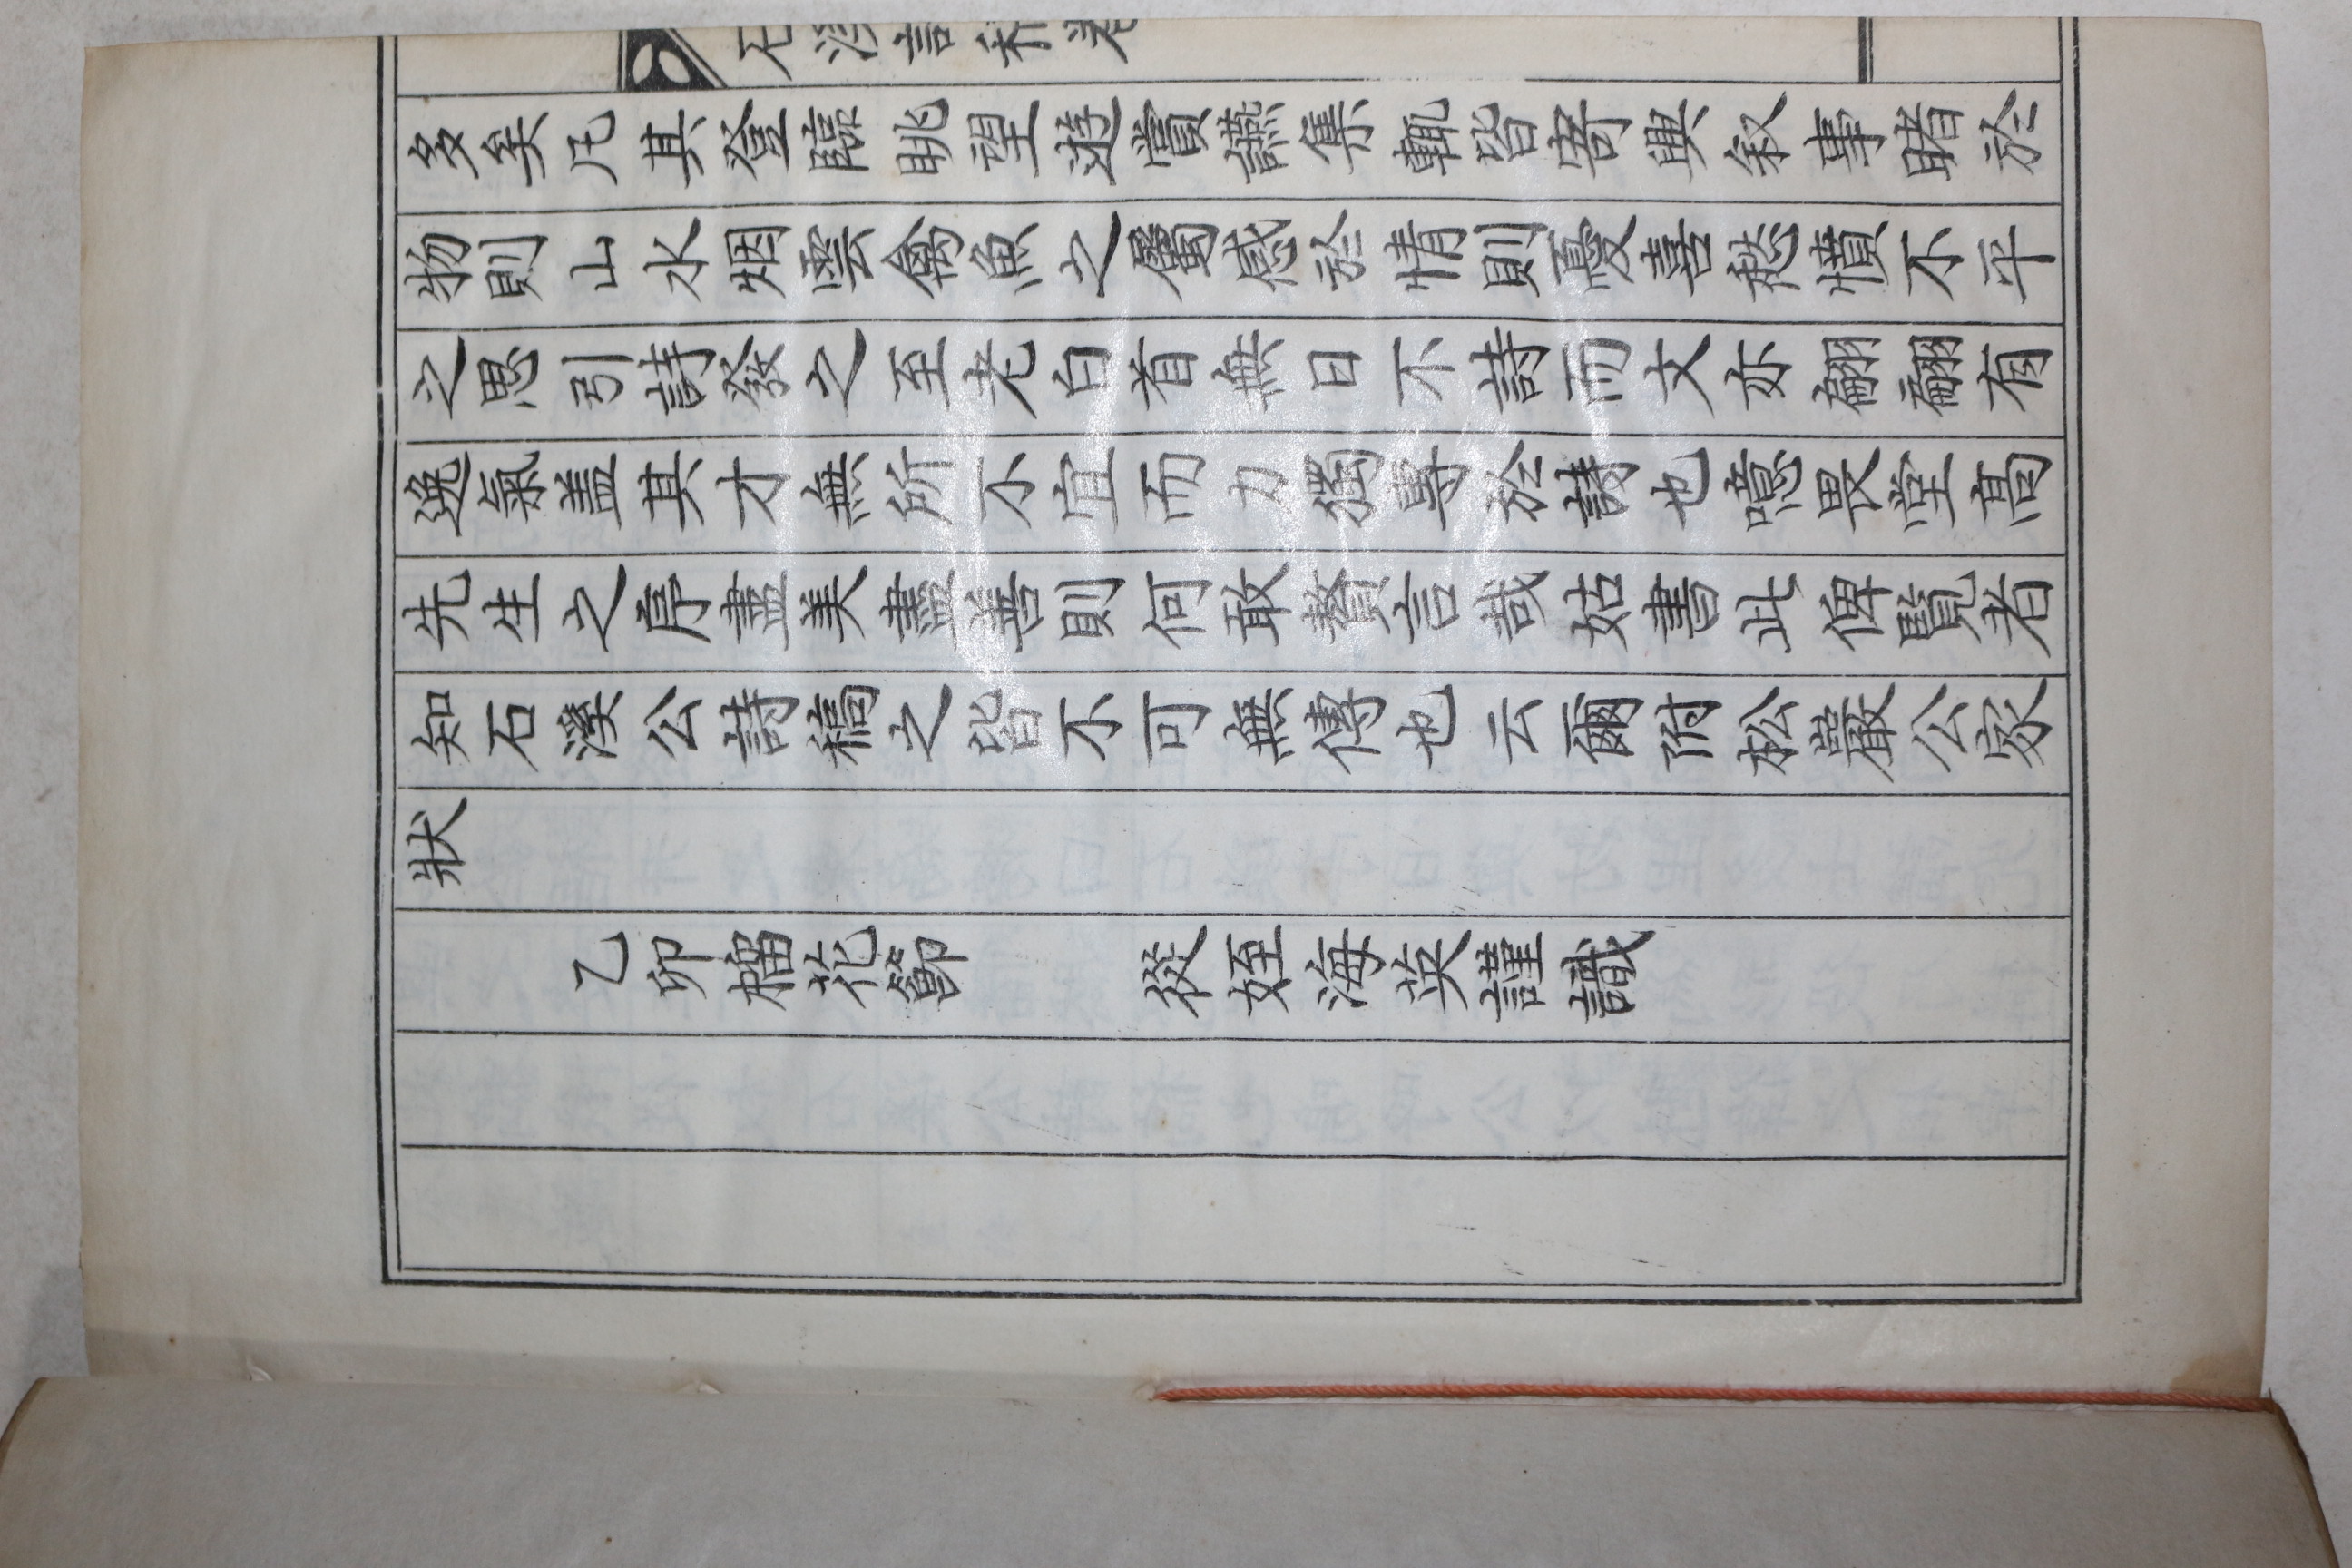 石溪詩稿卷
多矣凡其登臨眺望遊賞讌集輒皆寄興叙事睹於
物則山水烟雲禽魚之屬感於情則憂喜愁憤不平
之思引詩發之至老白首無日不詩而文亦翩翩有
逸氣盖其才無所不宜而力獨專於詩也噫畏堂高
先生之序盡美盡善則何敢贅言哉姑書此俾覧者
知石溪公詩稿之皆不可無傳也云爾附松巖公家
狀
乙卯榴花節　從姪海英謹識